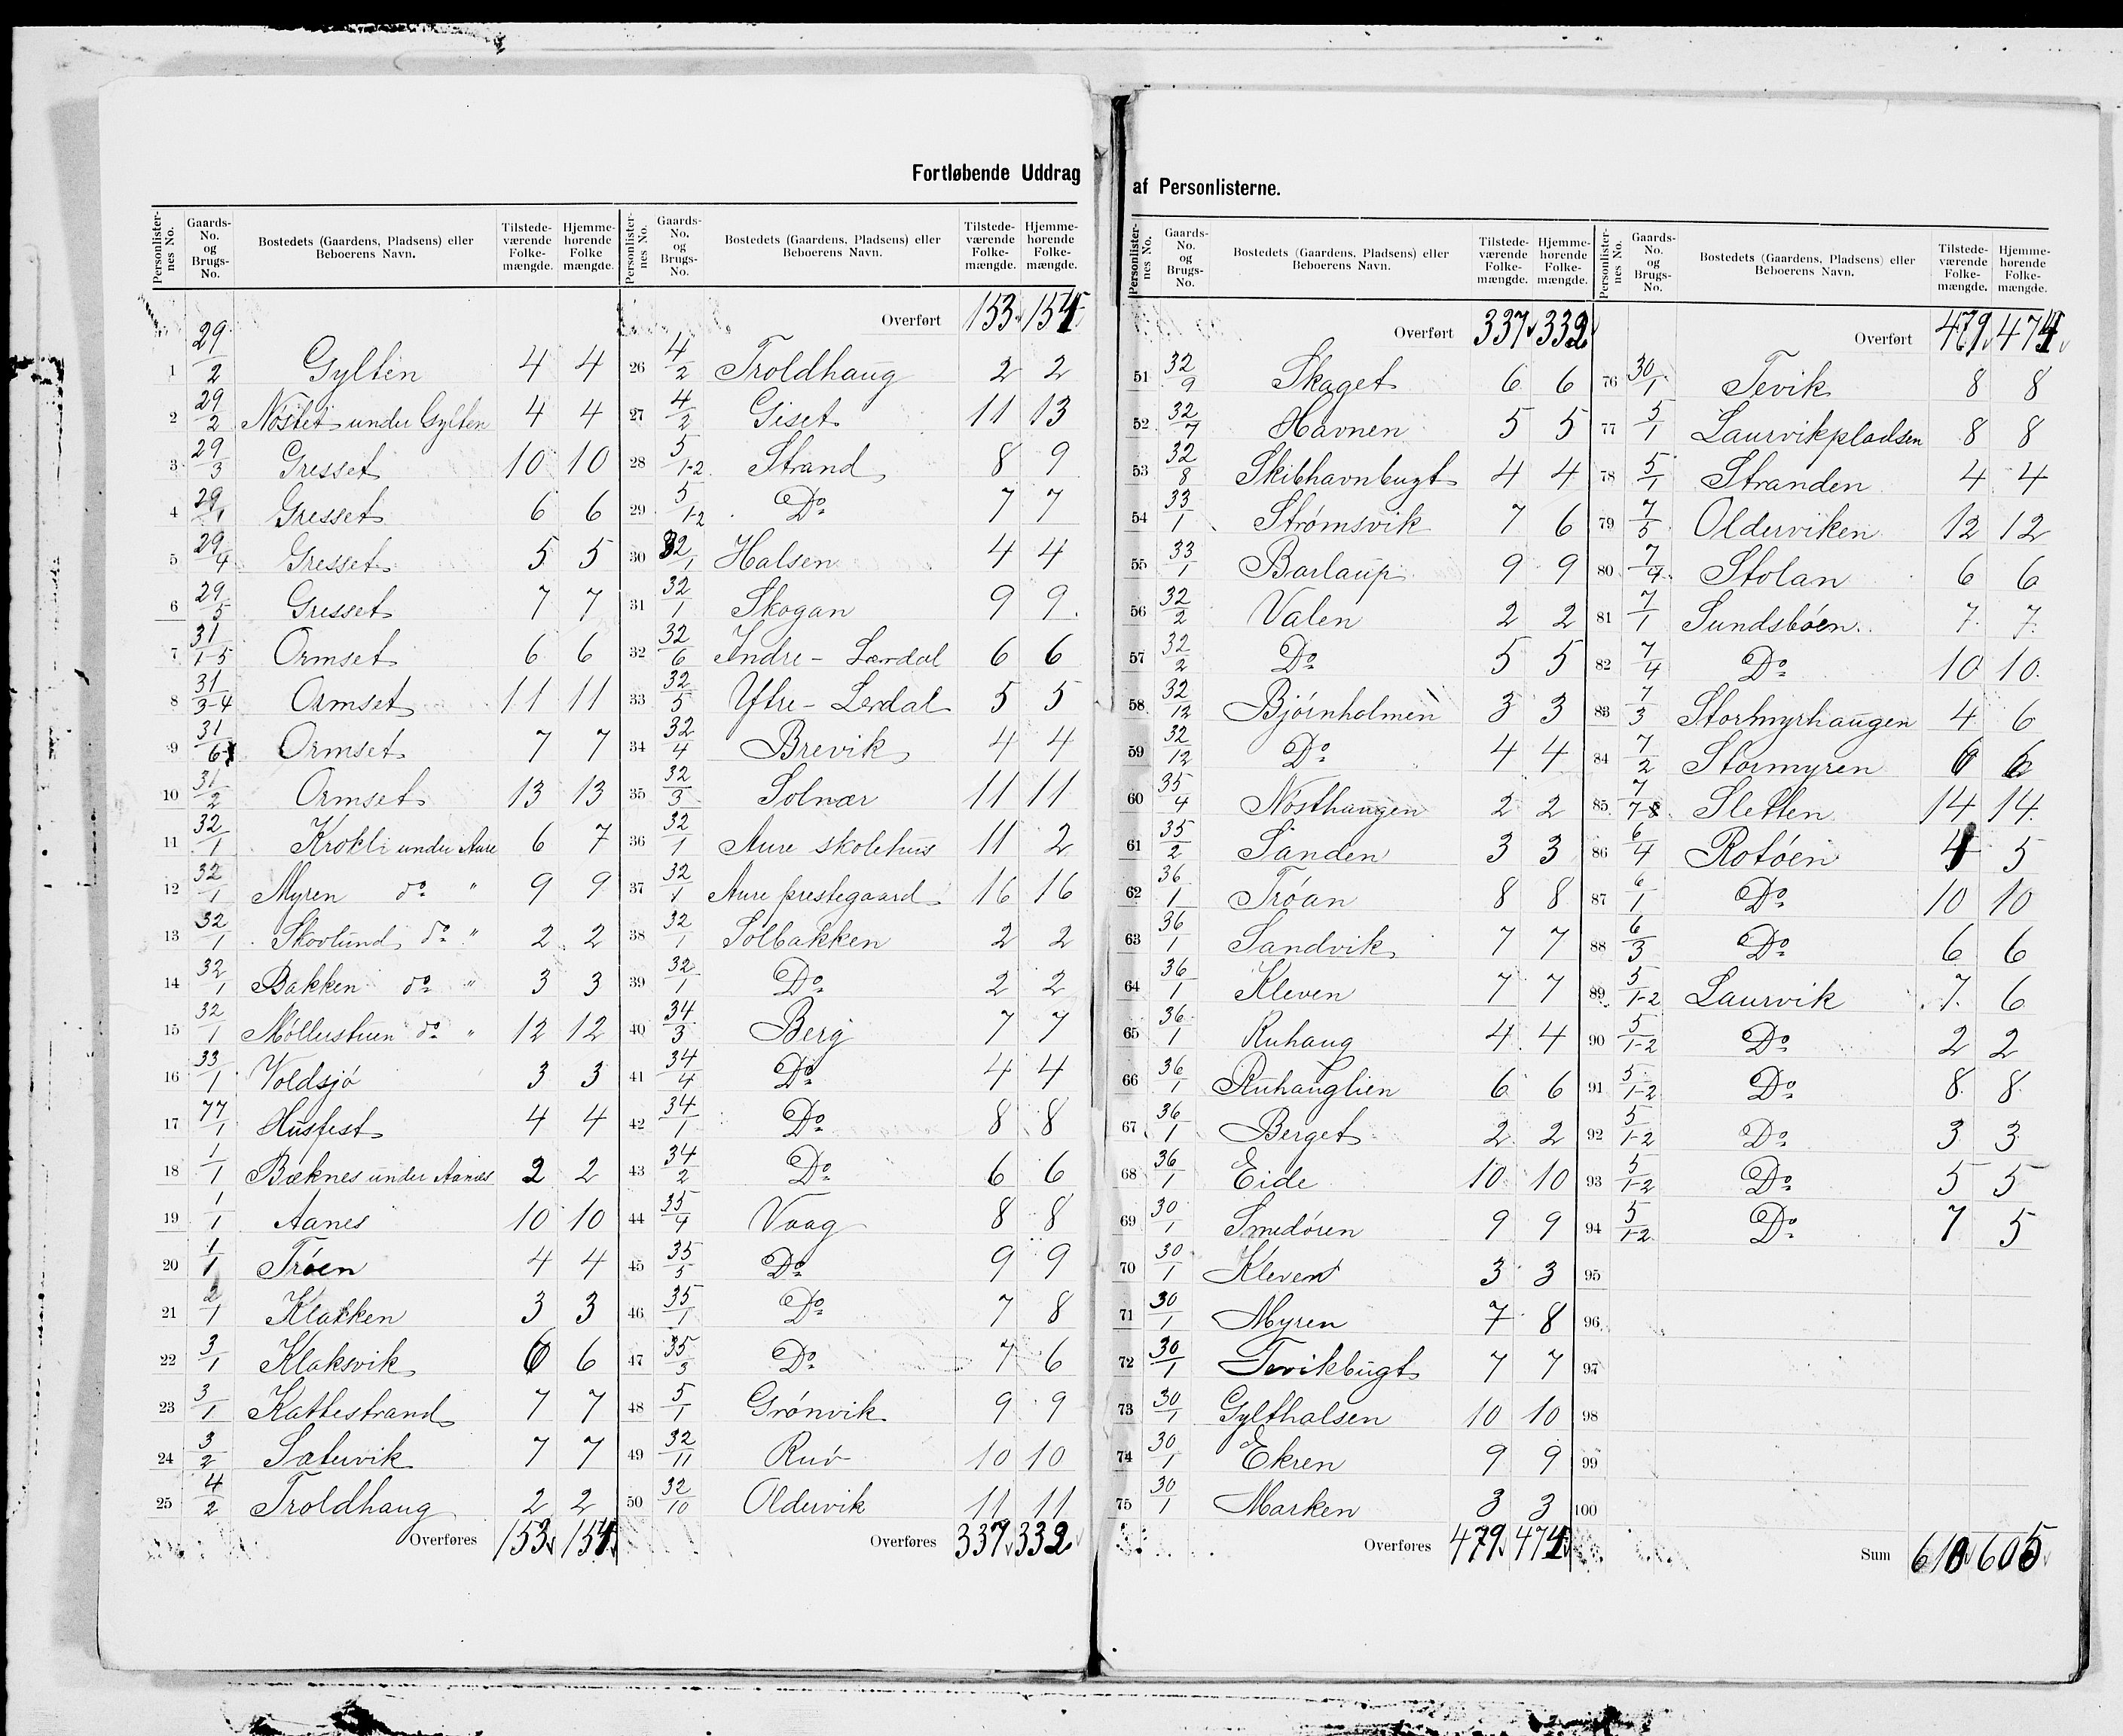 Fortløbende Uddrag
Personlister-nes No. | Gaards-No. og Brugs-No. | Bostedets (Gaardens, Pladsens) eller Beboerens Navn. | Tilstede-værende Folke-mængde. | Hjemme-hørende Folke mængde.
1 29/2 Gylten 4 4
2 29/2 Nøstet under Gylten 4 4
3 29/3 Gresset 10 10
4 29/1 Gresset 6 6
5 29/4 Gresset 5 5
6 29/5 Gresset 7 7
7 31/1-5 Ormset 6 6
8 31/3-4 Ormset 11 11
9 31/6 Ormset 7 7
10 31/2 Ormset 13 13
11 32/1 Krokli under Aure 6 7
12 32/1 Myren do " 9 9
13 32/1 Skovlund do " 2 2
14 32/1 Bakken do " 3 3
15 32/1 Møllerstuen do " 12 12
16 33/1 Voldsjø 3 3
17 77/1 Husfest 4 4
18 1/1 Bæknes under Aanes 2 2
19 1/1 Aanes 10 10
20 1/1 Trøen 4 4
21 2/1 Klakken 3 3
22 3/1 Klaksvik 6 6
23 3/1 Kattestrand 7 7
24 3/2 Sætervik 7 7
25 4/2 Troldhaug 2 2
Overføres 153 154
Personlister-nes No. | Gaards-No. og Brugs-No. | Bostedets (Gaardens, Pladsens) eller Beboerens Navn. | Tilstede-værende Folke-mængde. | Hjemme-hørende Folke-mængde.
Overført 153 154
26 4/2 Troldhaug 2 2
27 4/2 Giset 11 13
28 5/1-2 Strand 8 9
29 5/1-2 Do 7 7
30 32/1 Halsen 4 4
31 32/1 Skogan 9 9
32 32/6 Indre - Lærdal 6 6
33 32/5 Ytre - Lerdal 5 5
34 32/4 Brevik 4 4
35 32/3 Solnær 11 11
36 32/1 Aure skolehus 11 2
37 32/1 Aure prestegaard 16 16
38 32/1 Solbakken 2 2
39 32/1 Do 2 2
40 34/3 Berg 7 7
41 34/4 Do 4 4
42 34/1 Do 8 8
43 34/2 Do 6 6
44 35/4 Vaag 8 8
45 35/5 Do 9 9
46 35/1 Do 7 8
47 35/3 Do 7 6
48 5/1 Grønvik 9 9
49 32/11 Ruø 10 10
50 32/10 Oldervik 11 11
Overføres 337 332
af Personlisterne.
Personlister-nes No. | Gaards-No. og Brugs-No. | Bostedets (Gaardens, Pladsens) eller Beboerens Navn. | Tilstede-værende Folke-mængde. | Hjemme-hørende Folke-mængde.
Overført 337 332
51 32/9 Skaget 6 6
52 32/7 Havnen 5 5
53 32/8 Skibhavnbugt 4 4
54 33/1 Strømsvik 7 6
55 33/1 Barlaup 9 9
56 32/2 Valen 2 2
57 32/2 Do 5 5
58 32/12 Bjørnholmen 3 3
59 32/12 Do 4 4
60 35/4 Nøsthaugen 2 2
61 35/2 Sanden 3 3
62 36/1 Trøan 8 8
63 36/1 Sandvik 7 7
64 36/1 Kleven 7 7
65 36/1 Ruhaug 4 4
66 36/1 Ruhauglien 6 6
67 36/1 Berget 2 2
68 36/1 Eide 10 10
69 30/1 Smedøren 9 9
70 30/1 Kleven 3 3
71 30/1 Myren 7 8
72 30/1 Tevikbugt 7 7
73 30/1 Gylthalsen 10 10
74 30/1 Ekren 9 9
75 30/1 Marken 3 3
Overføres 479 474
Personlister-nes No. | Gaards-No. og Brugs-No. | Bostedets (Gaardens, Pladsens) eller Beboerens Navn. | Tilstede-værende Folke-mængde. | Hjemme-hørende Folke-mængde.
Overført 479 474
76 30/1 Tevik 8 8
77 5/1 Laurvikpladsen 8 8
78 5/1 Stranden 4 4
79 7/5 Olderviken 12 12
80 7/4 Stolan 6 6
81 7/1 Sundsbøen 7 7
82 7/4 Do 10 10
83 7/3 Stormyrhaugen 4 6
84 7/2 Stormyren 6 6
85 7/7 Sletten 14 14
86 6/4 Rotøen 4 5
87 6/1 Do 10 10
88 6/3 Do 6 6
89 5/1-2 Laurvik 7 6
90 5/1-2 Do 2 2
91 5/1-2 Do 8 8
92 5/1-2 Do 3 3
93 5/1-2 Do 5 5
94 5/1-2 Do 7 5
95
96
97
98
99
100
Sum 610 605